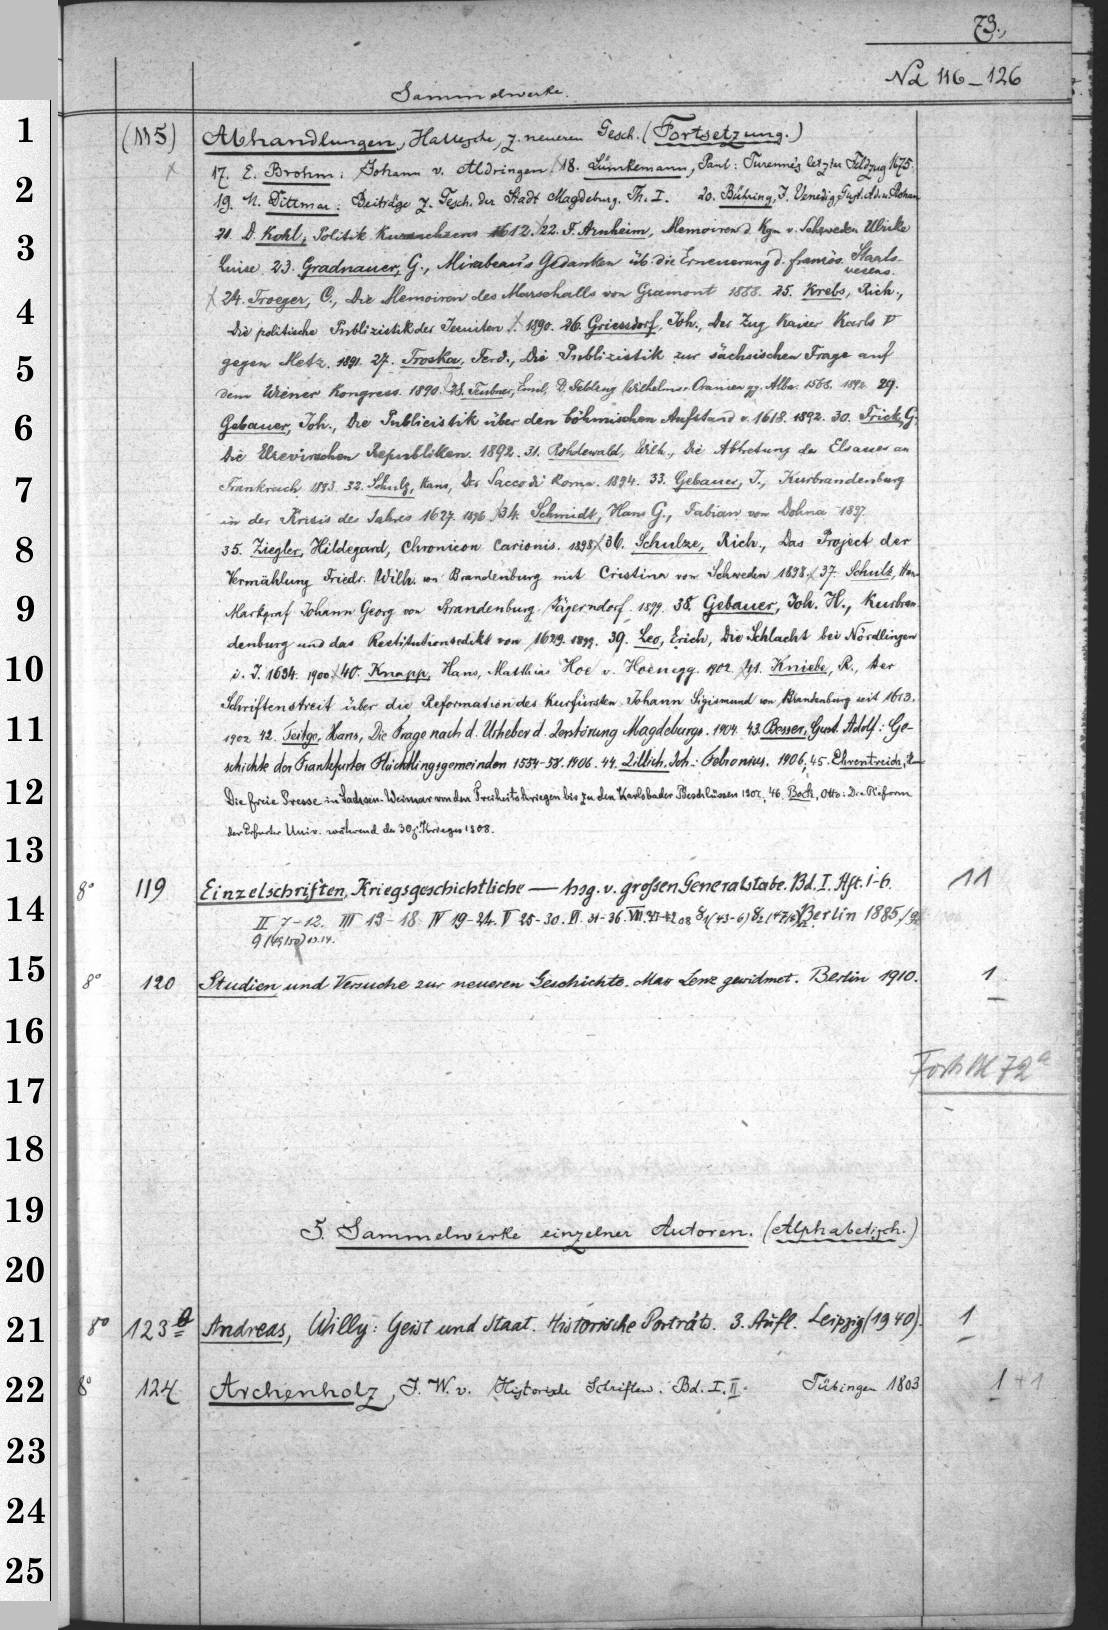 73.
Nd 116-126
Sammelwerke.
1 (115) Abhandlungen, Hallesche, z. neueren Gesch. (Fortsetzung.)
2 17. E. Brohm: Johann v. Aldringen 18. Lümkemann, Paul: Turennes letzter Feldzug 1675.
19. M. Dittmar: Beiträge z. Gesch. der Stadt Magdeburg. Th. I. 20. Bühring, J. Venedig, Gust. Ad. u. Rohan
3 21. D. Kohl, Politik Kursachsens 1612. 22. F. Arnheim, Memoiren d. Kgn v. Schweden Ulrike
Luise 23. Gradnauer, G., Mirabeau's Gedanken üb die Erneuerung d. französ. Staats-
wesens.
4 24. Troeger, C., Die Memoiren des Marschalls von Gramont 1888. 25. Krebs, Rich.,
Die politische Publizistik der Jesuiten 1890. 26. Griessdorf, Joh., Der Zug Kaiser Karls V
5 gegen Metz. 1891. 27. Troska, Ferd., Die Publizistik zur sächsischen Frage auf
dem Wiener Kongress 1890. 28. Teubner, Emil, D. Feldzug Wilhelms v. Oranien gg. Alba 1568. 1892. 29.
6 Gebauer, Joh., Die Publicistik über den böhmischen Aufstand v. 1618. 1892. 30. Frick, G.
Die Republiken. 1892. 31. Rohdewald, Wilh., Die Abtretung des Elsasses an
7 Frankreich 1893. 32. Schulz, Hans, Der Sacco di Roma. 1894. 33. Gebauer, J., Kurbrandenburg
in der Krisis des Jahres 1627. 1896 34. Schmidt, Hans G., Fabian von Dohna 1897.
8 35. Ziegler, Hildegard, Chronicon Carionis. 1898 36. Schulze, Rich., Das Project der
Vermählung Friedr. Wilh. von Brandenburg mit Cristina von Schweden 1898. 37. Schulz, Han-
9 Markgraf Johann Georg von Brandenburg-Jägerndorf. 1899. 38. Gebauer, Joh. H., Kurbran-
denburg und das Restitutionsedikt von 1629. 1899. 39. Leo, Erich, Die Schlacht bei Nördlingen
10 i. J. 1634. 1900. 40. Knapp, Hans, Matthias Hoe v. Hoenegg. 1902. 41. Kniebe, R., Der
Schriftenstreit über die Reformation des Kurfürsten Johann Sigismund von Brandenburg seit 1613.
11 1902 42. Teitge, Hans, Die Frage nach d. Urheber d. Zerstörung Magdeburgs. 1904. 43. Besser, Gust. Adolf: Ge-
schichte der Frankfurter Flüchtlingsgemeinden 1554-58. 1906. 44. Zillich, Joh.: Febronius. 1906. 45. Ehrentreich, H.
12 Die freie Presse in Sachsen-Weimar von den Freiheitskriegen bis zu den Karlsbader Beschlüssen 1907. 46. Bock, Otto: Die Reform
der Erfurter Univ. während des 30j. Krieges 1908.
13
8° 119 Einzelschriften, Kriegsgeschichtliche — hsg. v. großen Generalstabe. Bd. I. Hft. 1-6. 11
14 II 7-12. III 13-18. IV 19-24. V 25-30. VI 31-36. VII 37-42 08 8/1 (43-6) 8/2 (47/8) Berlin 1885/
9 (49/50)
15 8° 120 Studien und Versuche zur neueren Geschichte. Max Lenz gewidmet. Berlin 1910. 1
16
17 Forts Bl 72a
18
19 5. Sammelwerke einzelner Autoren. (Alphabetisch.)
20
21 8° 123 a Andreas, Willy: Geist und Staat. Historische Porträts. 3. Aufl. Leipzig (1940). 1
22 8° 124 Archenholz, J. W. v. Historische Schriften. Bd. I. II. Tübingen 1803 1 + 1
23
24
25